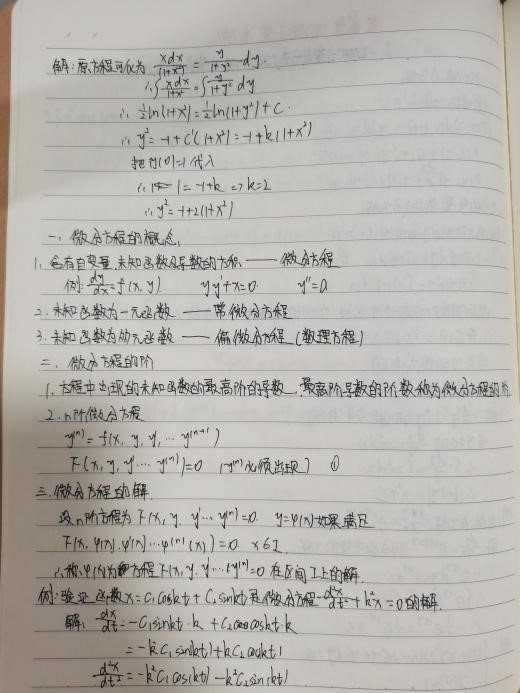 解:原方程可化为 xdx/(1+x²) = y/(1+y²) dy.
∴∫xdx/(1+x²) = ∫y/(1+y²) dy
∴ ½ln(1+x²) = ½ln(1+y²)+C.
∴ y² = -1+C'(1+x²) = -1+k(1+x²)
把y(0)=1代入
∴ 1 = -1+k => k=2
∴ y² = -1+2(1+x²)
一、微分方程的概念.
1. 含有自变量,未知函数及导数的方程. —— 微分方程
例: dy/dx = f(x,y) y·y'+x=0. y''=a
2. 未知函数为一元函数 —— 常微分方程
3. 未知函数为 元函数 —— 偏微分方程 (数理方程)
二、微分方程的阶
1. 方程中出现的未知函数的最高阶的导数, 最高阶导数的阶数称为微分方程的阶
2. n阶微分方程
y⁽ⁿ⁾ = f(x, y, y', … y⁽ⁿ⁻¹⁾)
F(x, y, y' … y⁽ⁿ⁾)=0 (y⁽ⁿ⁾必须出现) ①
三、微分方程的解.
设n阶方程为 F(x, y, y' … y⁽ⁿ⁾)=0. y=φ(x)如果满足
F(x, φ(x), φ'(x) … φ⁽ⁿ⁾(x))=0. x∈I.
∴称φ(x)为 方程F(x, y, y' … y⁽ⁿ⁾)=0 在区间I上的解.
例:验证函数x=C₁coskt+C₂sinkt是微分方程 d²x/dt²+k²x=0的解.
解: dx/dt = -C₁sinkt·k + C₂coskt·k
= -kC₁sin(kt)+kC₂cos(kt)
d²x/dt² = -k²C₁cos(kt) -k²C₂sin(kt)